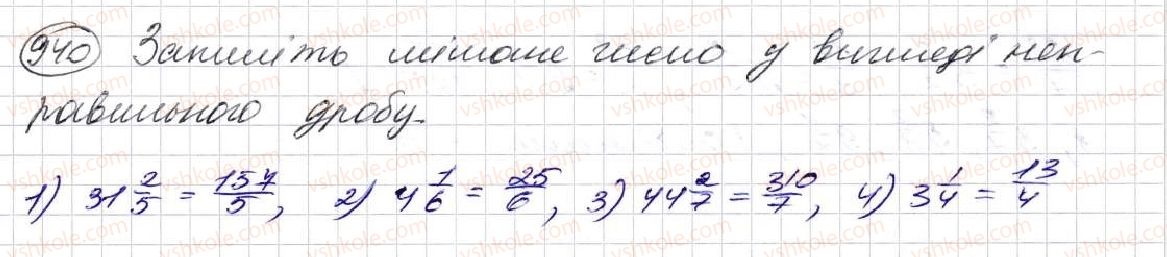 940 Запишіть мішане число у вигляді неп-
равильного дробу.
1) 31 2/5 = 157/5, 2) 4 1/6 = 25/6, 3) 44 2/7 = 310/7, 4) 3 1/4 = 13/4